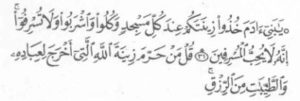 يَٰبَنِىٓ ءَادَمَ خُذُوا۟ زِينَتَكُمْ عِندَ كُلِّ مَسْجِدٍ وَكُلُوا۟ وَٱشْرَبُوا۟ وَلَا تُسْرِفُوٓا۟ ۚ
إِنَّهُۥ لَا يُحِبُّ ٱلْمُسْرِفِينَ ٣١ قُلْ مَنْ حَرَّمَ زِينَةَ ٱللَّهِ ٱلَّتِىٓ أَخْرَجَ لِعِبَادِهِۦ
وَٱلطَّيِّبَٰتِ مِنَ ٱلرِّزْقِ ۚ